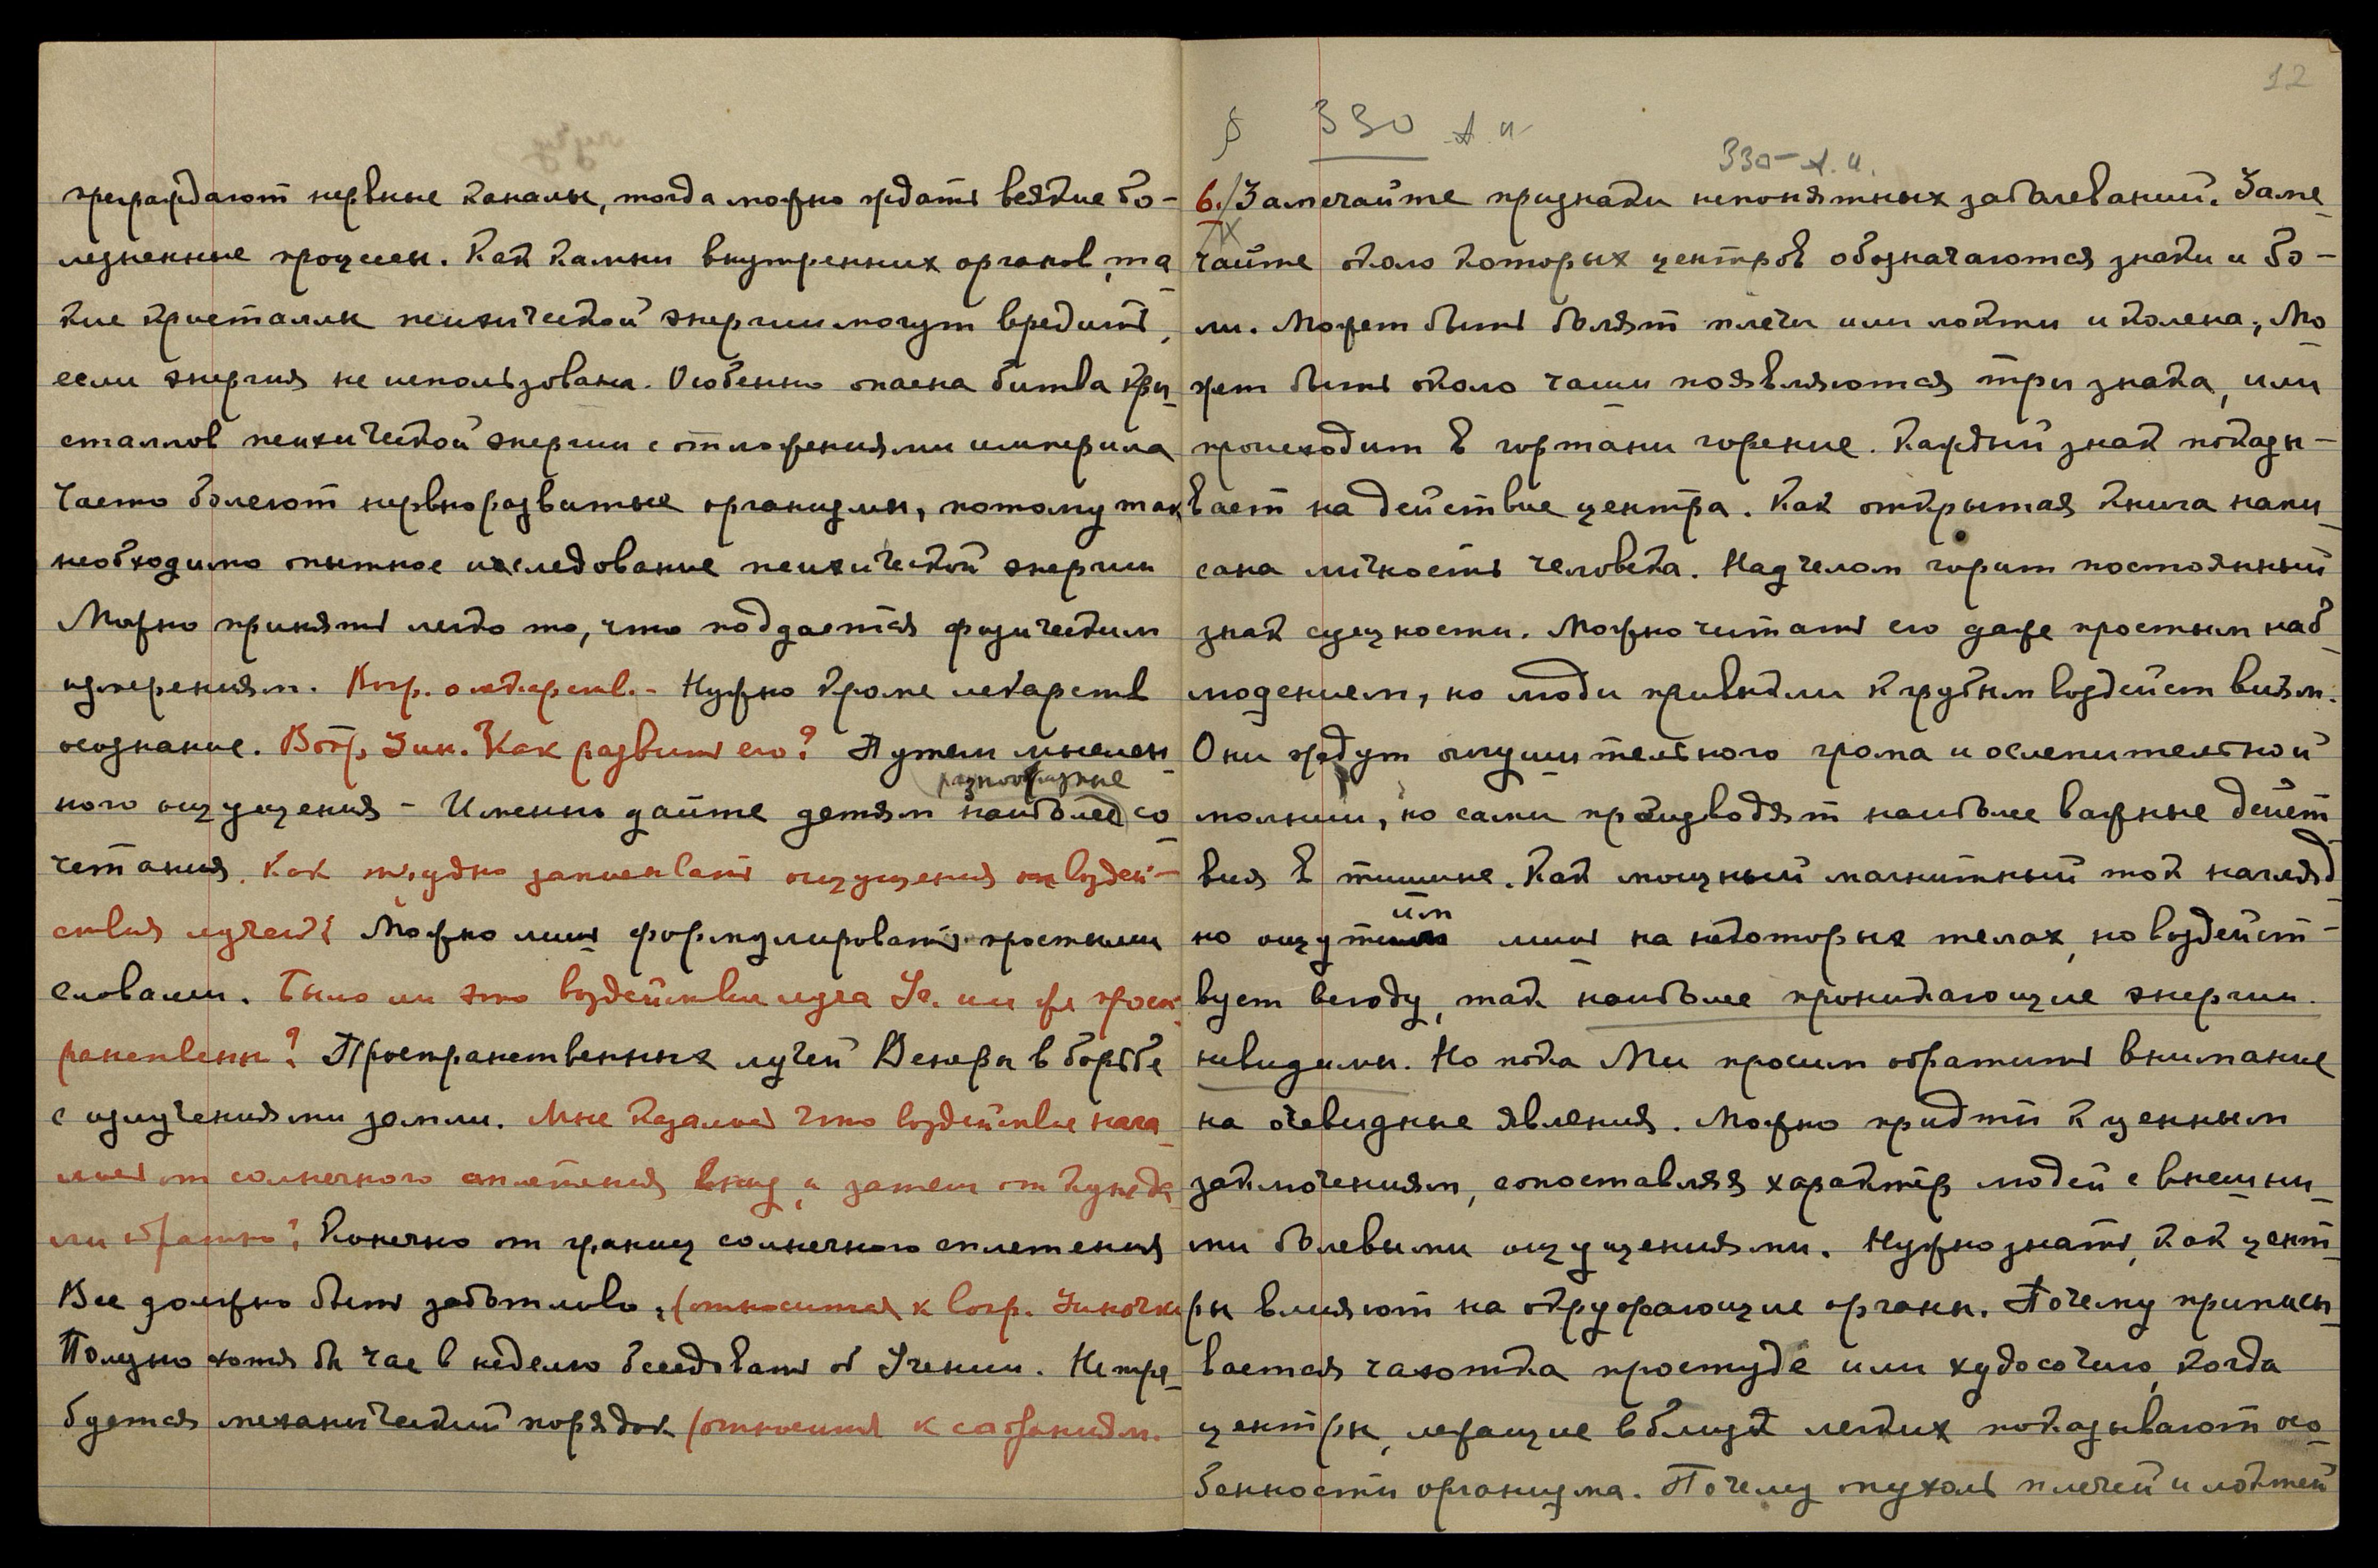 преграждают нервные каналы, тогда можно ждать всякие бо-
лезненные процессы. Как камни внутренних органов, та-
кие кристаллы психической энергии могут вредить,
если энергия не использована. Особенно опасна битва кри-
сталлов психической энергии с отложениями империла
Часто болеют нервно развитые организмы, потому так
необходимо опытное исследование психической энергии
Можно принять легко то, что поддается физическим
измерениям. Вопр. о лекарств. - Нужно кроме лекарств
осознание. Вопр. Как развить его? Путем мыслен-
разнообразные
ного ощущения - Именно дайте детям наиболее со-
четания. Как трудно записывать ощущения от воздей-
ствия лучей! Можно лишь формулировать простыми
словами. Было ли это воздействие луча Уч. или же прост-
ранственн? Пространственных лучей Венеры в борьбе
с излучениями земли. Мне казалось что воздействие нача-
лось от солнечного сплетения вниз, а затем от кундали-
ни обратно? Конечно от границ солнечного сплетения
Все должно быть заботливо, (относится к вопр.
Полезно хотя бы час в неделю беседовать об Учении. Не тре-
буется механический порядок (относится к собраниям.
12
§ 330 А. И.
330 - А. И.
6./ Замечайте признаки непонятных заболеваний. Заме-
IX
чайте около которых центров обозначаются знаки и бо-
ли. Может быть болят плечи или локти и колена, мо-
жет быть около чаши появляются три знака, или
происходит в гортани горение. Каждый знак показы-
вает на действие центра. Как открытая книга напи-
сана личность человека. Над челом горит постоянный
знак сущности. Можно читать его даже простым наб-
людением, но люди привыкли к грубым воздействиям.
Они ждут оглушительного грома и ослепительной
молнии, но сами производят наиболее важные дейст-
вия в тишине. Как мощный магнитный ток нагляд-
им
но ощутим лишь на некоторых телах, но воздейст-
вует всюду, так наиболее проникающие энергии
невидимы. Но пока Мы просим обратить внимание
на очевидные явления. Можно придти к ценным
заключениям, сопоставляя характер людей с внешни-
ми болевыми ощущениями. Нужно знать, как цент-
ры влияют на окружающие органы. Почему приписы-
вается чахотка простуде или худосочию, когда
центры, лежащие вблизи легких показывают осо-
бенности организма. Почему опухоль плечей и локтей